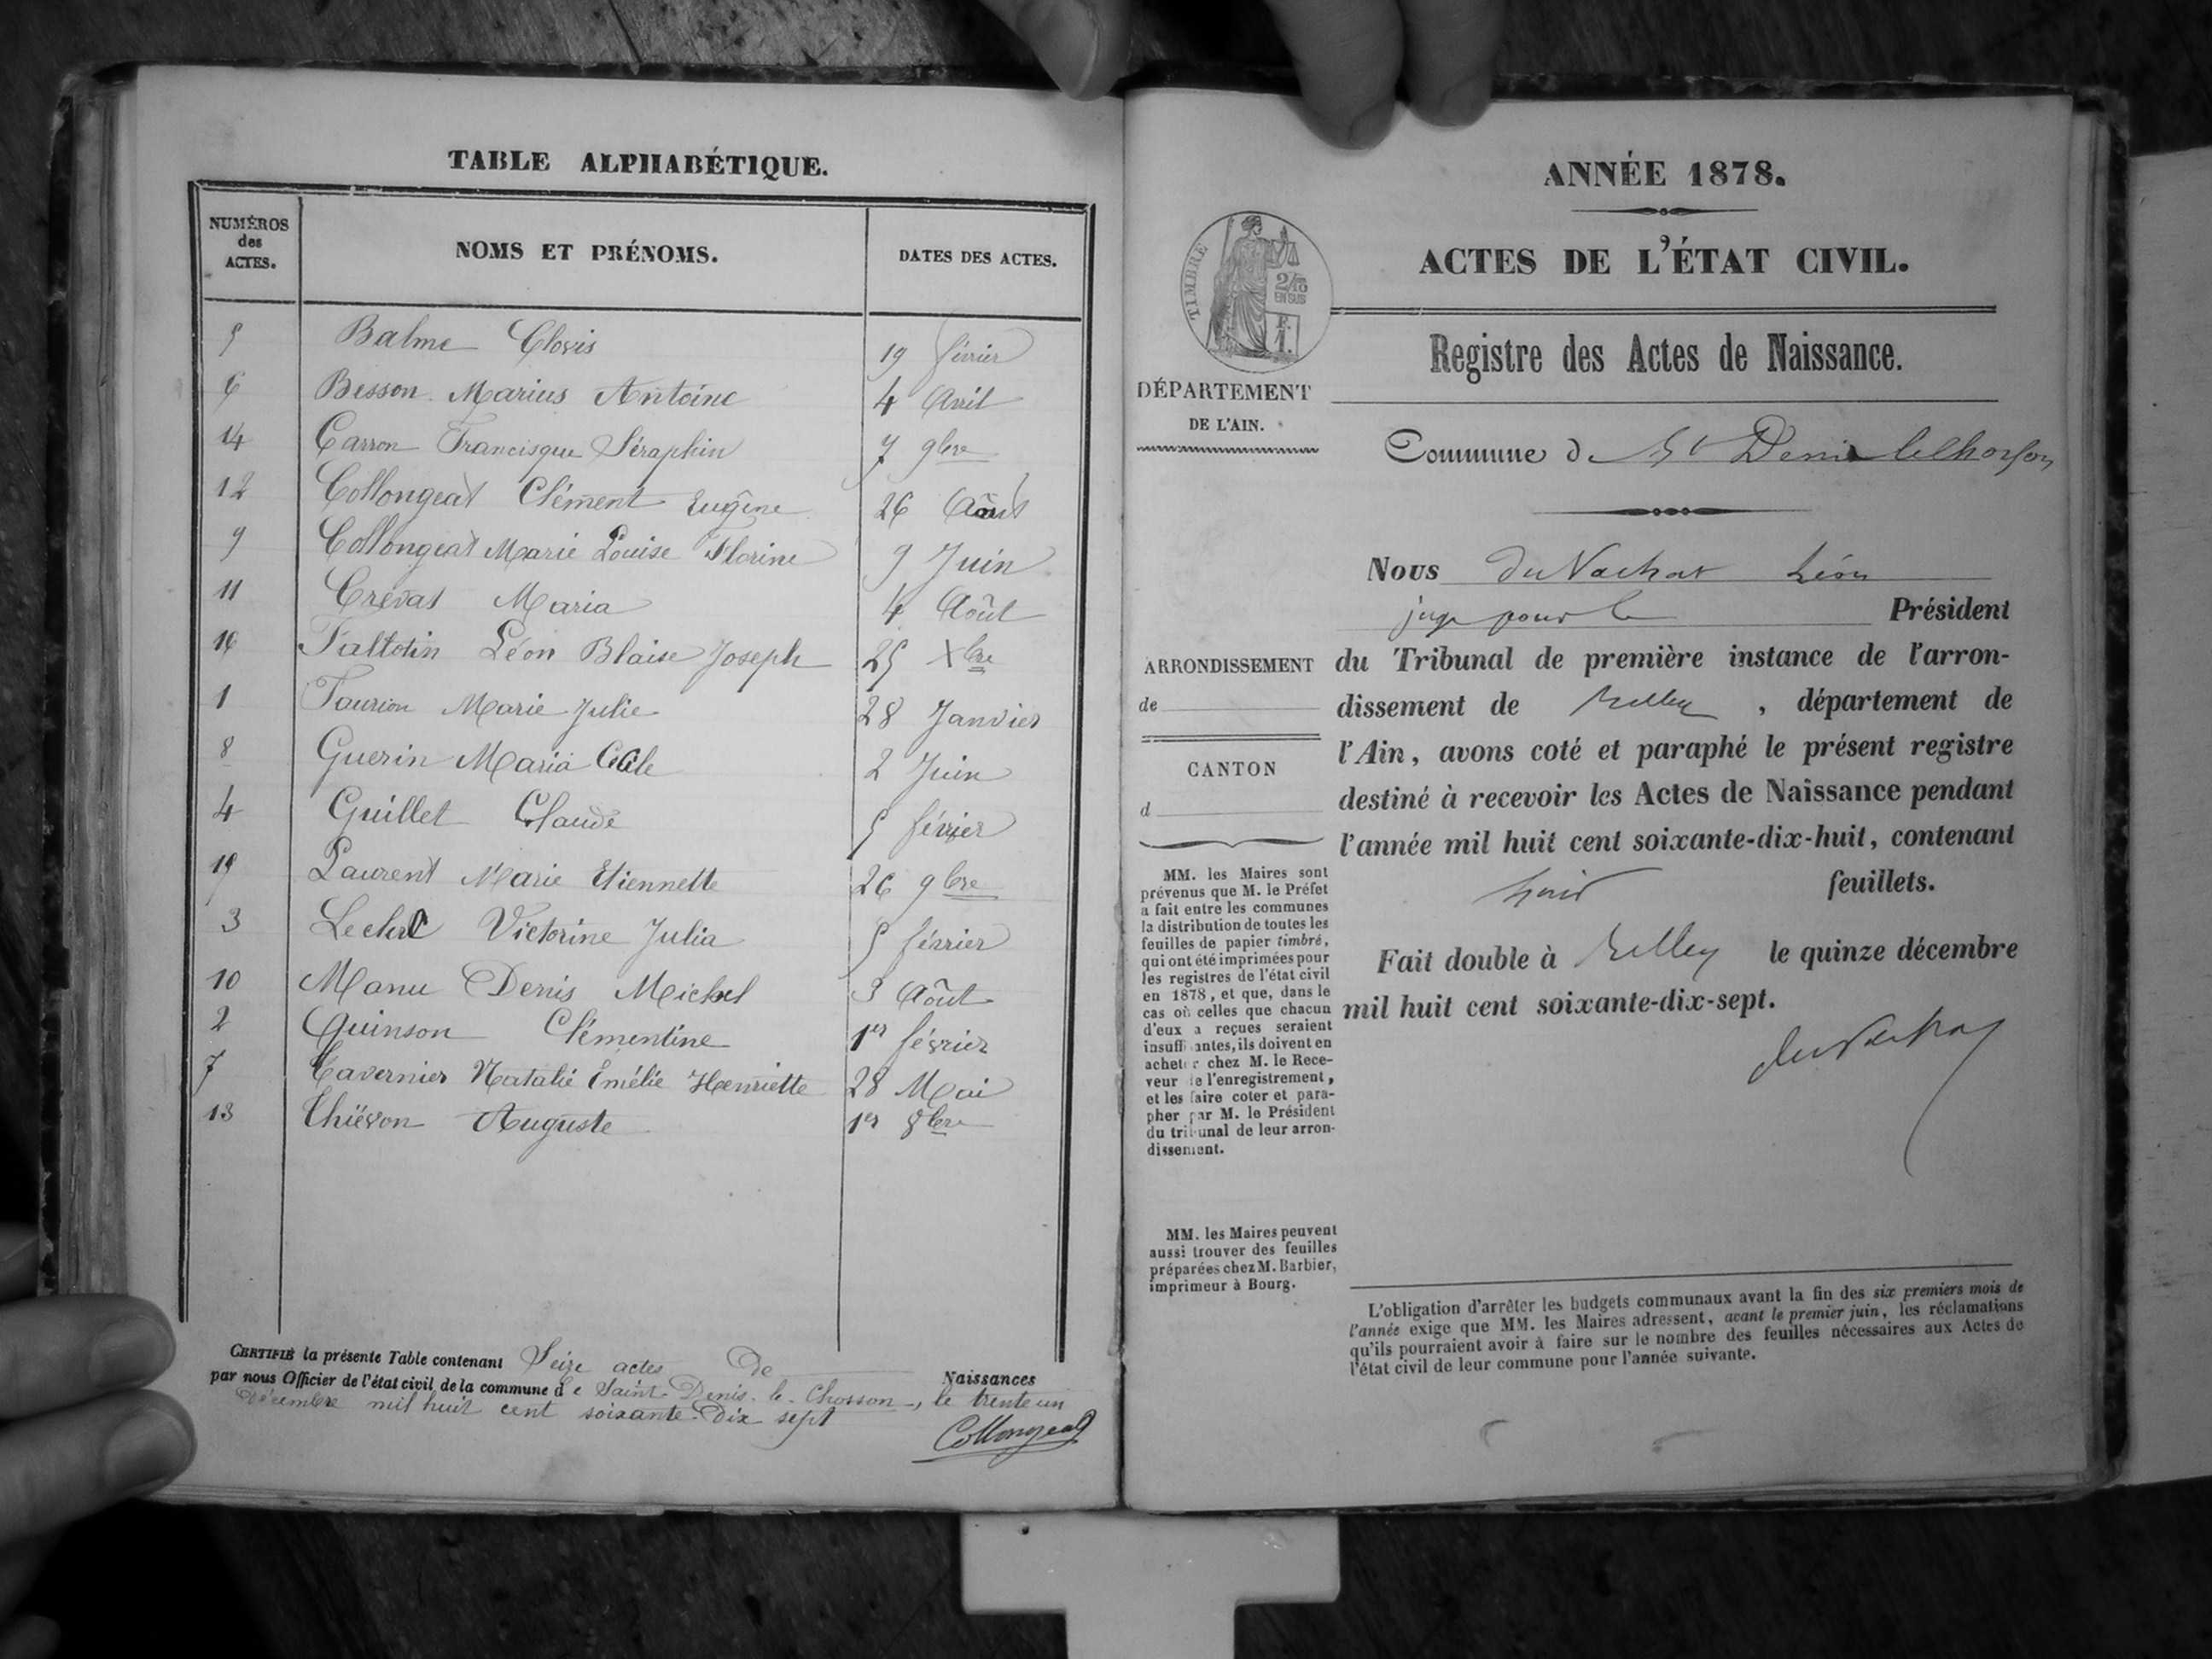 TABLE ALPHABÉTIQUE.
NUMÉROS des ACTES.
NOMS ET PRÉNOMS.
DATES DES ACTES.
5 Balme Clovis 19 février
6 Besson Marius Antoine 4 Avril
14 Carron Francisque Séraphin 7 9bre
12 Collongeat Clément Eugène 26 Août
9 Collongeat Marie Louise Florine 9 Juin
11 Crévat Maria 4 Août
16 Faltotin Léon Blaise Joseph 25 Xbre
1 Faurion Marie Julie 28 Janvier
8 Guerin Maria Cécile 2 Juin
4 Guillet Claude 5 février
15 Laurent Marie Etiennette 26 9bre
3 Leclerc Victorine Julia 5 février
10 Manu Denis Michel 3 Août
2 Quinson Clémentine 1er février
7 Tavernier Natalie Emélie Henriette 28 Mai
13 Thiévon Auguste 1er 8bre
CERTIFIÉ la présente Table contenant Seize actes De Naissances
par nous Officier de l'état civil de la commune de Saint-Denis-le-Chosson, le trente un
Décembre mil huit cent soixante-Dix sept
Collongeat
ANNÉE 1878.
ACTES DE L'ÉTAT CIVIL.
TIMBRE
2/10
EN SUS
F.
1.
Registre des Actes de Naissance.
DÉPARTEMENT
DE L'AIN.
Commune d St Denis le Chosson
Nous du Vachat Léon
juge pour le Président
du Tribunal de première instance de l'arron-
dissement de Belley, département de
l'Ain, avons coté et paraphé le présent registre
destiné à recevoir les Actes de Naissance pendant
l'année mil huit cent soixante-dix-huit, contenant
huit feuillets.
Fait double à Belley le quinze décembre
mil huit cent soixante-dix-sept.
du Vachat
ARRONDISSEMENT
de
CANTON
d
MM. les Maires sont
prévenus que M. le Préfet
a fait entre les communes
la distribution de toutes les
feuilles de papier timbré,
qui ont été imprimées pour
les registres de l'état civil
en 1878, et que, dans le
cas où celles que chacun
d'eux a reçues seraient
insuffisantes, ils doivent en
acheter chez M. le Rece-
veur de l'enregistrement,
et les faire coter et para-
pher par M. le Président
du tribunal de leur arron-
dissement.
MM. les Maires peuvent
aussi trouver des feuilles
préparées chez M. Barbier,
imprimeur à Bourg.
L'obligation d'arrêter les budgets communaux avant la fin des six premiers mois de
l'année exige que MM. les Maires adressent, avant le premier juin, les réclamations
qu'ils pourraient avoir à faire sur le nombre des feuilles nécessaires aux Actes de
l'état civil de leur commune pour l'année suivante.